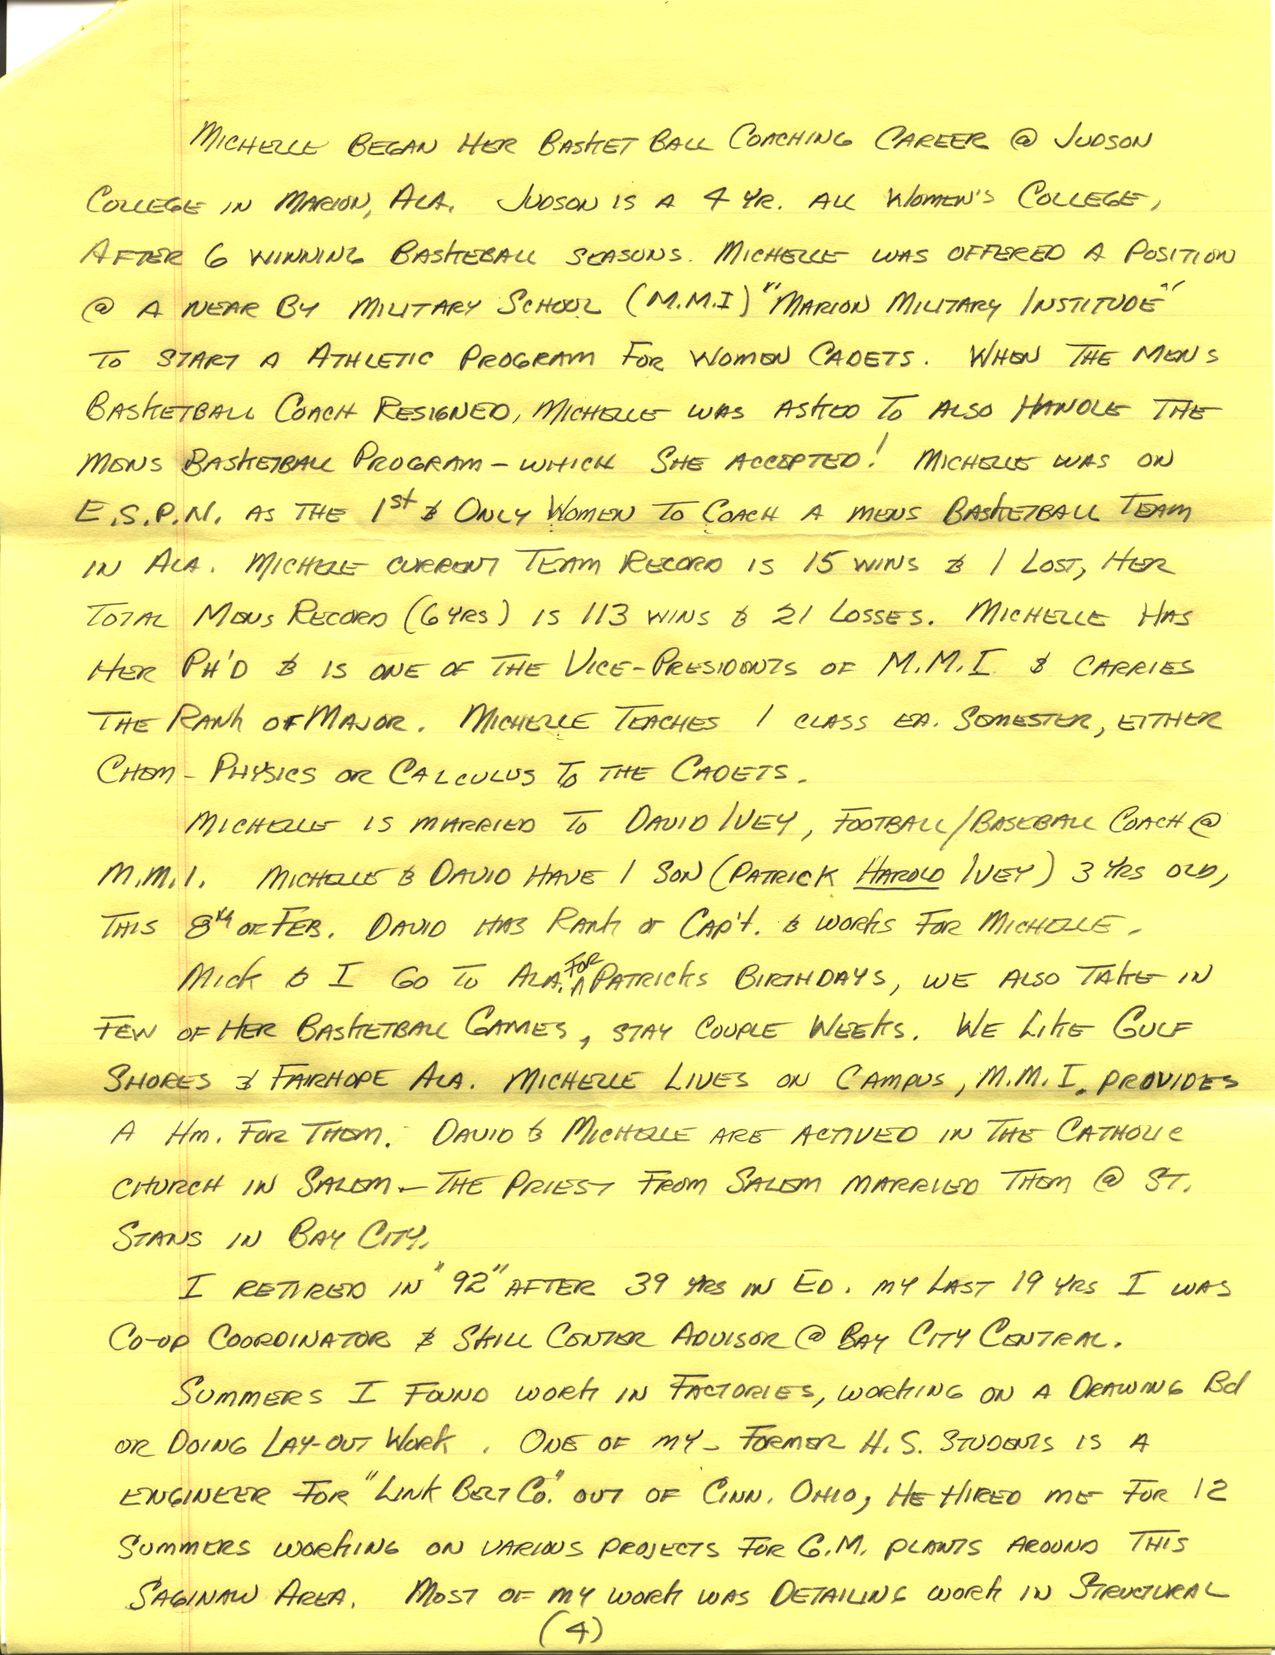 Michelle Began Her Basket Ball Coaching Career @ Judson
College in Marion, Ala. Judson is a 4 yr. all Women's College,
After 6 winning Basketball seasons. Michelle was offered a position
@ a near by Military School (M.M.I) "Marion Military Institude"
to start a Athletic Program for Women Cadets. When the Mens
Basketball Coach Resigned, Michelle was asked to also handle the
mens Basketball Program - which she accepted! Michelle was on
E.S.P.N. as the 1st & Only Women to Coach a mens Basketball Team
in Ala. Michele current Team Record is 15 wins & 1 Lost, Her
Total Mens Record (6 yrs) is 113 wins & 21 Losses. Michelle has
her PH'D & is one of the Vice-Presidents of M.M.I & carries
the Rank of Major. Michelle Teaches 1 class ea. semester, either
Chem - Physics or Calculus to the Cadets.
Michelle is married to David Ivey, Football/Baseball Coach @
M.M.I. Michelle & David have 1 son (Patrick Harold Ivey) 3 yrs old,
this 8th of Feb. David has Rank of Cap't. & works for Michelle.
Mick & I go to Ala. for Patricks Birthdays, we also take in
few of her Basketball Games, stay couple weeks. We like Gulf
Shores & Fairhope Ala. Michelle lives on campus, M.M.I. provides
a Hm. for them. David & Michelle are actived in the Catholic
church in Salem - the priest from Salem married them @ St.
Stans in Bay City.
I retired in "92" after 39 yrs in Ed. my last 19 yrs I was
Co-op Coordinator & Skill Center Advisor @ Bay City Central.
Summers I found work in Factories, working on a Drawing Bd
or Doing Lay-out Work. One of my - former H.S. students is a
engineer for "Link Belt Co." out of Cinn. Ohio, he hired me for 12
summers working on various projects for G.M. plants around this
Saginaw Area. Most of my work was Detailing work in Structural
(4)